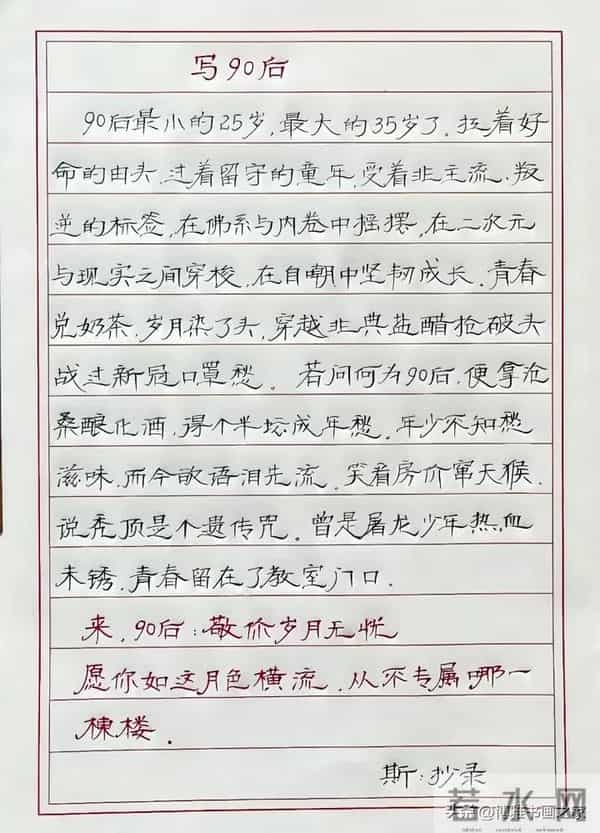 写90后
90后最小的25岁,最大的35岁了,拉着好
命的由头,过着留守的童年,受着非主流、叛
逆的标签,在佛系与内卷中摇摆,在二次元
与现实之间穿梭,在自嘲中坚韧成长.青春
兑奶茶,岁月染了头,穿越非典盐醋抢破头
战过新冠口罩愁. 若问何为90后,便拿沧
桑酿化酒,得个半坛成年愁.年少不知愁
滋味,而今欲语泪先流.笑看房价窜天猴,
说秃顶是个遗传咒.曾是屠龙少年热血
未锈,青春留在了教室门口.
来,90后:敬你岁月无忧
愿你如这月色横流,从不专属哪一
栋楼.
斯:抄录
若水网
头条@祖雅书画之家